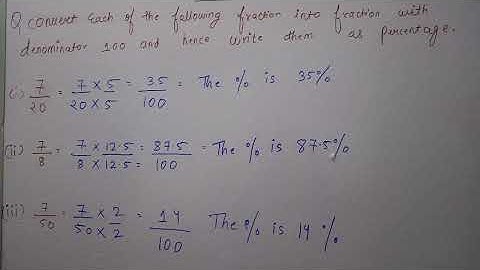 Q convert Each of the following fraction into fraction with
denominator 100 and hence write them as percentage.
(i) 7/20 = 7 × 5/20 × 5 = 35/100 = The % is 35%
(ii) 7/8 = 7 × 12.5/8 × 12.5 = 87.5/100 = The % is 87.5%
(iii) 7/50 = 7/50 × 2/2 = 14/100 The % is 14 %